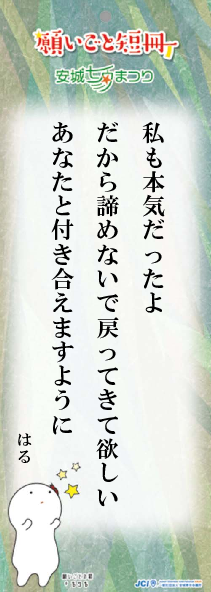 願いごと短冊
安城七夕まつり
私も本気だったよ
だから諦めないで戻ってきて欲しい
あなたと付き合えますように
はる
JCI